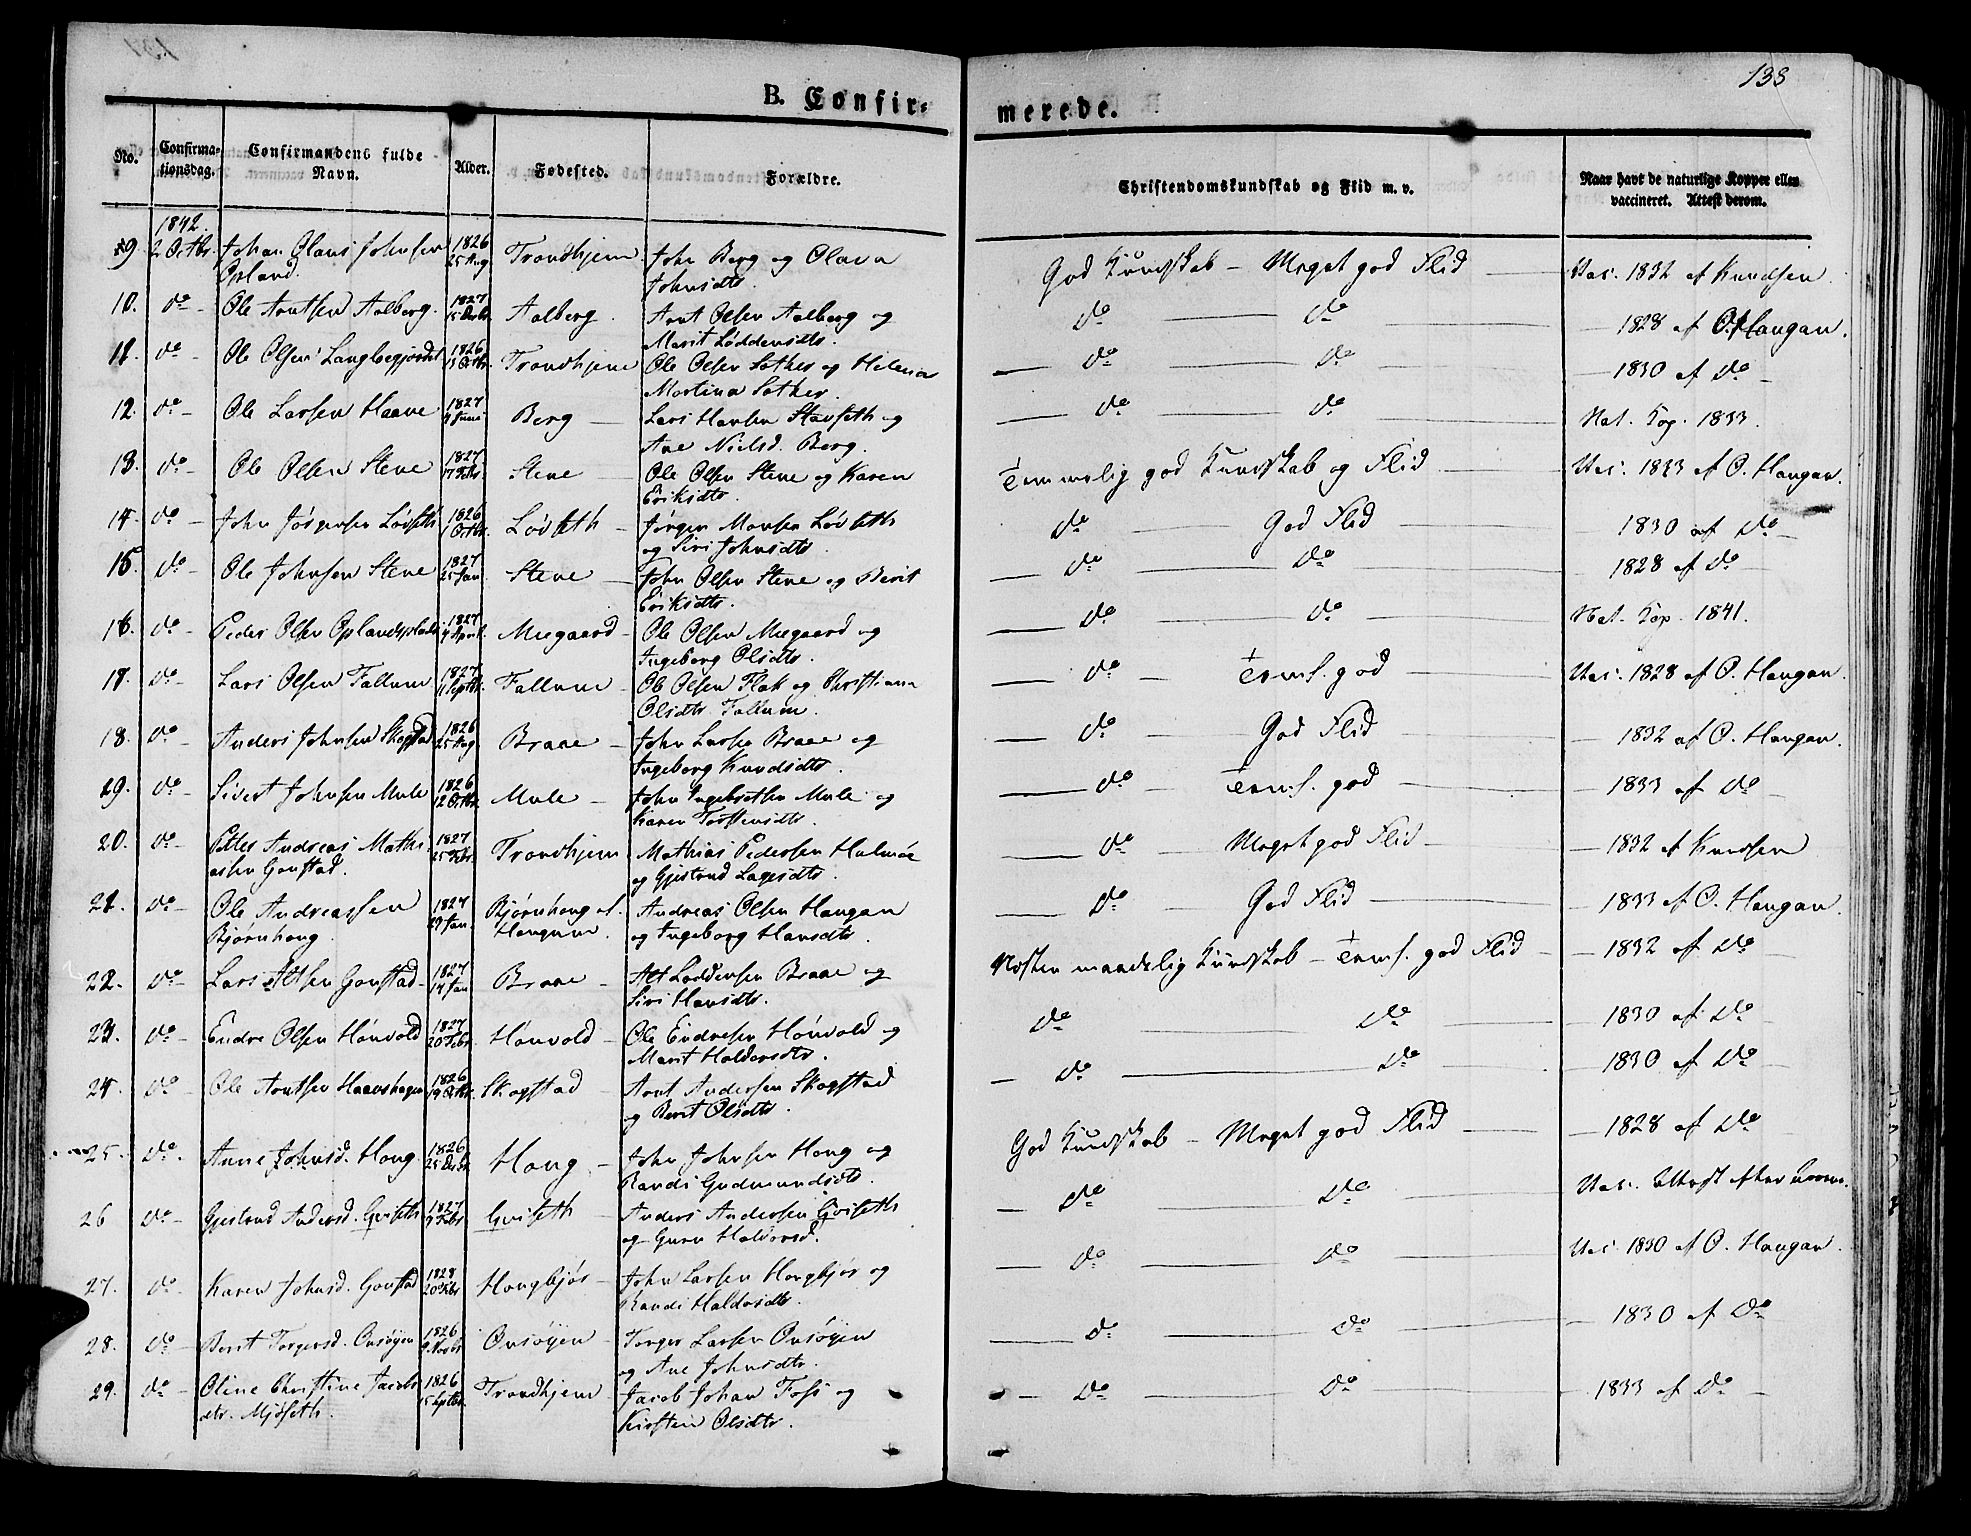 138
B. Confir-
merede.
No.
Confirma-
tionsdag.
Confirmandens fulde
Navn.
Alder.
Fødested.
Forældre.
Christendomskundskab og Flid m. v.
Naar havt de naturlige Kopper eller
vaccineret. Attest derom.
1842.
9. 2 Octbr. Johan Olaus Johnsen 1826 Trondhjem John Berg og Olava God Kundskab – Meget god Flid Vac. 1832 af Knudsen
Opland. 25 Aug Johnsdtr.
10. do Ole Arntsen Aalberg. 1827 Aalberg. Arnt Olsen Aalberg og do do 1828 af O. Haugan.
15 Decbr. Marit Loddensdtr.
11. do Ole Olsen 1826 Trondhjem Ole Olsen Sather og Helena do do 1830 af do
Octbr. Martina Sather.
12. do Ole Larsen Haave 1827 Berg Lars Hansen Stavseth og do do Nat. Kop. 1833.
Juni Ane Nielsd. Berg.
13. do Ole Olsen Stene 1827 Stene Ole Olsen Stene og Karen Temmelig god Kundskab og Flid Vac. 1833 af O. Haugan.
17 Febr. Eriksdtr.
14. do John Jörgensen Lövseth 1826 Lövseth Jörgen Monsen Lövseth do God Flid 1830 af do
Octbr. og Siri Johnsdtr.
15. do Ole Johnsen Stene 1827 Stene John Olsen Stene og Berit do do 1828 af do
25 Jan. Eriksdtr.
16. do Peder Olsen Oplandsplads 1827 Meegaard Ole Olsen Meegaard og do do Nat. Kop. 1841.
April. Ingeborg Olsdtr.
17. do Lars Olsen Fallum 1827 Fallum Ole Olsen Flak og Christiana do Temml. god Vac. 1828 af O. Haugan.
Septbr. Olsdtr. Fallum.
18. do Anders Johnsen Skogstad 1826 Braae John Larsen Braae og do God Flid 1832 af O. Haugan.
25 Aug. Ingeborg Knudsdtr.
19. do Sivert Johnsen Mule 1826 Mule John Ingebretsen Mule og do Temml. god 1833 af do
12 Octbr. Karen Torstensdtr.
20. do Petter Andreas Mathi- 1827 Trondhjem Mathias Pedersen Halmöe do Meget god Flid 1832 af Knudsen
asen Gonstad. 25 Febr. og Gjertrud Lagesdtr.
21. do Ole Andreassen 1827 Björnhong af Andreas Olsen Haugan do God Flid 1833 af O. Haugan.
Björnhong. Jan. Hangran og Ingeborg Hansdtr.
22. do Lars Altsen Gonstad 1827 Braae Alt Loddensen Braae og Nesten maadelig Kundskab – Temml. god Flid 1832 af do
14 Jan Siri Hansdtr.
23. do Endre Olsen Hönvold 1827 Hönvold Ole Endresen Hönvold og do do 1830 af do
20 Febr. Marit Haldorsdtr.
24. do Ole Arntsen Haavshagen 1826 Skogstad Arnt Andersen Skogstad do do 1830 af do
19 Octbr. og Berit Olsdtr.
25. do Anne Johnsd. Hong 1826 Hong John Johnsen Hong og God Kundskab – Meget god Flid 1828 af do
25 Decbr. Randi Gudmundsdtr.
26 do Gjertrud Andersd. Gviseth 1827 Gviseth Anders Andersen Gviseth do do Vac. Attest
Febr. og Guru Haldorsd.
27. do Karen Johnsd. Gonstad 1828 Hongbjör John Larsen Hongbjör og do do Vac. 1830 af O. Haugan.
20 Febr. Randi Haldorsdtr.
28. do Berit Torgersd. Onsöyen 1826 Onsöyen Torger Larsen Onsöyen do do 1830 af do
9 Novbr. og Ane Johnsdtr.
29. do Oline Christine Jacobs- 1826 Trondhjem Jacob Johan Foss og do do 1833 af do
dtr. Mjöseth. 15 Septbr. Kirsten Olsdtr.